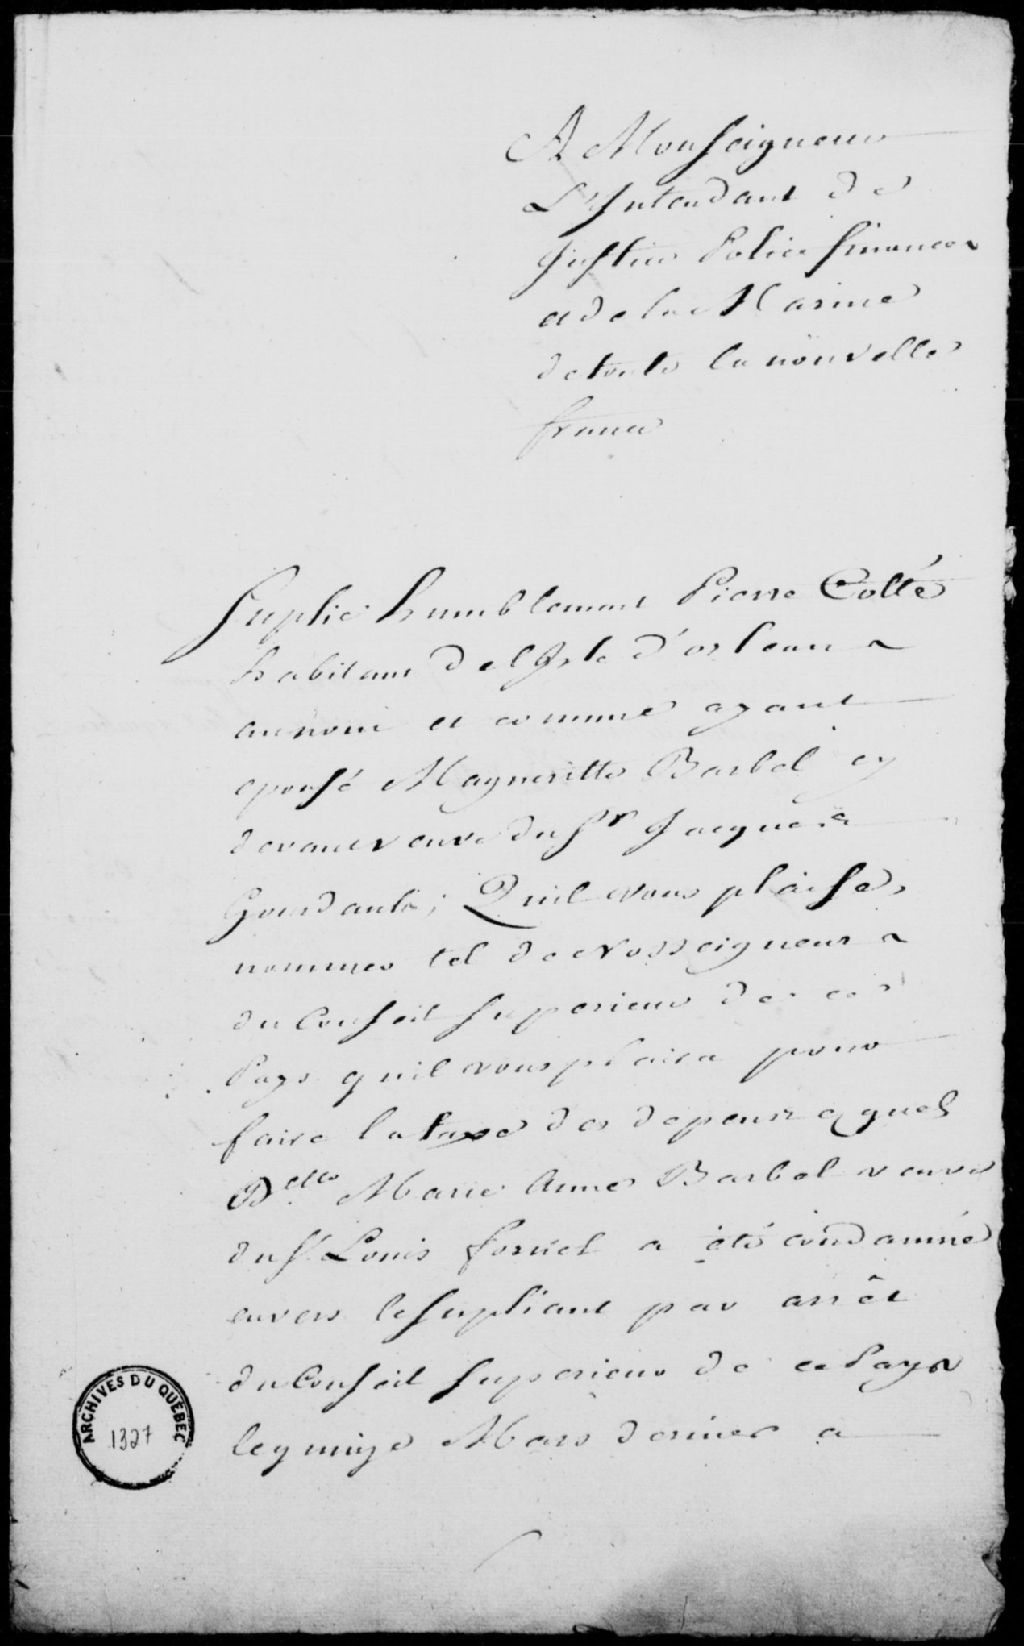 A Monseigneur
L'Intendant de
Justice Police finances
et de la Marine
de toute la nouvelle
france
Suplie humblement Pierre Cotté
habitant de l'Isle d'orleans
au nom et comme ayant
epousé Magueritte Barbel cy
devant veuve du Sr Jacques
Gourdault; Qu'il vous plaise,
nommer tel de Nosseigneurs
du Conseil Superieur de ce
Pays qu'il vous plaira pour
faire la taxe des depens esquels
Delle Marie Anne Barbel veuve
du Sr Louis fornel a été condamné
envers le Supliant par arrêt
du Conseil Superieur de ce Pays
le quinze Mars dernier a
ARCHIVES DU QUÉBEC
1327